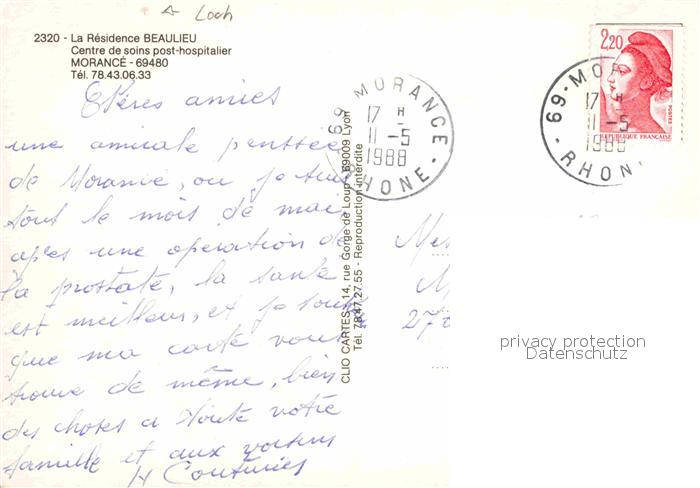 Loch
2320 - La Résidence BEAULIEU
Centre de soins post-hospitalier
MORANCÉ - 69480
Tél. 78.43.06.33
Chères amies
une amicale pensée
de Morancé, ou je suis
tout le mois de mai
après une opération de
la prostate, la santé
est meilleur, et je souhaite
que ma carte vous
trouve de même, bien
des choses a toute votre
famille et aux voisins
H Couturier
69 MORANCE
17 H
11 -5
1988
RHONE
CLIO CARTES - 14, rue Gorge de Loup - 69009 Lyon
Tél. 78.47.27.55 - Reproduction interdite
2,20
POSTES
REPUBLIQUE FRANÇAISE
69 - MOR
17 H
11 -5
1988
- RHON
Mes
M
27
privacy protection
Datenschutz